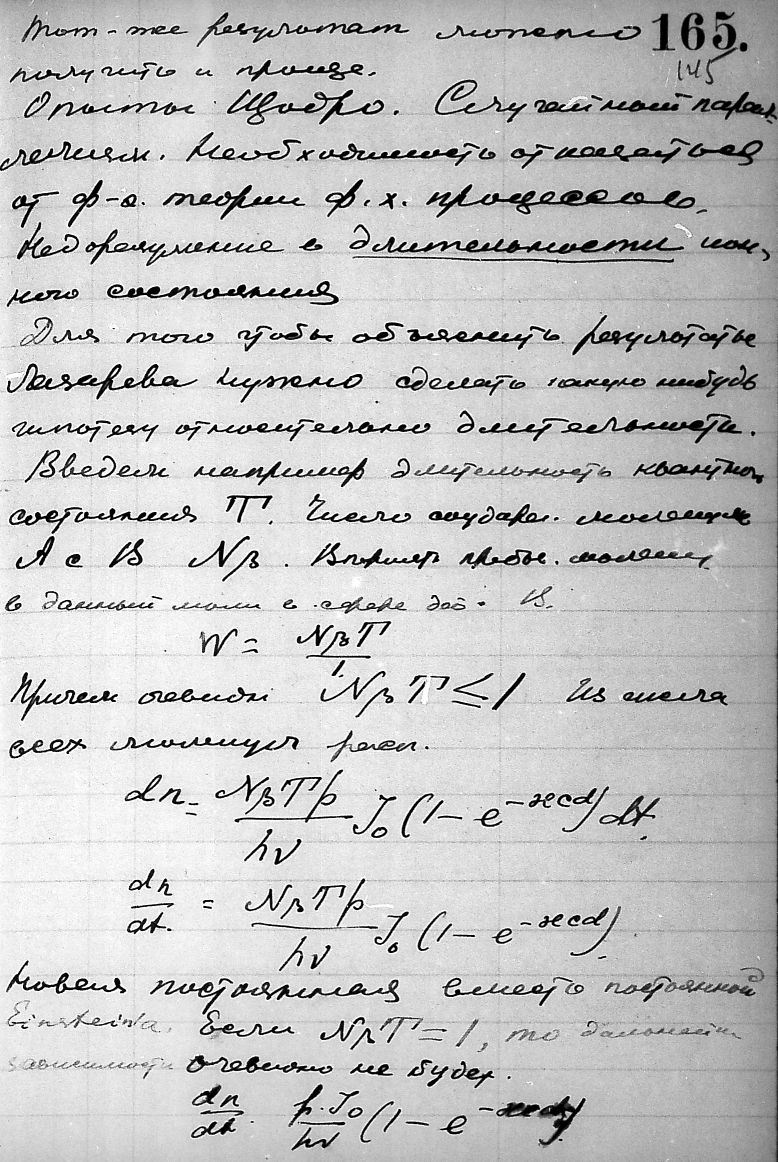 Тот-же результат можно 165.
145
получить и проще.
Опыты Щодро. Случайный парал-
лелизм. Необходимость отказаться
от ф-о. теории ф.х. процессов.
Недоразумение о длительности
ного состояния
Для того чтобы объяснить результаты
Лазарева нужно сделать какую нибудь
гипотезу относительно длительности.
Введем например длительность квантов.
состояния T. Число соударен. молекулы
A с B Nβ. Вероят. пребы. молекул
в данный мом. в сфере дей. B.
W = NβT/1
Причем очевидно NβT ≤ 1 Из числа
всех молекул расп.
dn = NβTp/hν J₀ (1 - e^{-ϰcd}) dt.
dn/dt = NβTp/hν J₀ (1 - e^{-ϰcd}).
Новая постоянная вместо постоянной
Einstein'a. Если NβT = 1, то дальнейш.
зависимости очевидно не будет.
dn/dt p.J₀/hν (1 - e^{-ϰcd})